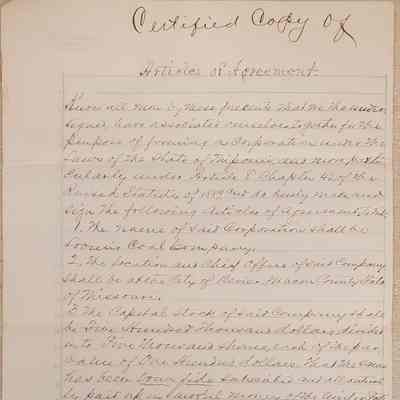 Certified Copy of
Articles of Agreement.
Know all men by these presents that we the under
signed, have associated ourselves together for the
purpose of forming a Corporation under the
Laws of the State of Missouri, and more parti
cularly under Article 8 Chapter 42 of the
Revised Statutes of 1889 and do hereby make and
sign the following Articles of Agreement, to wit:
1. The name of said Corporation shall be
Loomis Coal Company.
2. The location and Chief Office of said Company
shall be at the City of Bevier, Macon County, State
of Missouri.
3. The Capital Stock of said Company shall
be Five Hundred Thousand dollars, divided
into Five Thousand shares, each of the par
value of One Hundred dollars. That the same
has been bona fide subscribed and all actual
ly paid up in lawful money of the United Stat